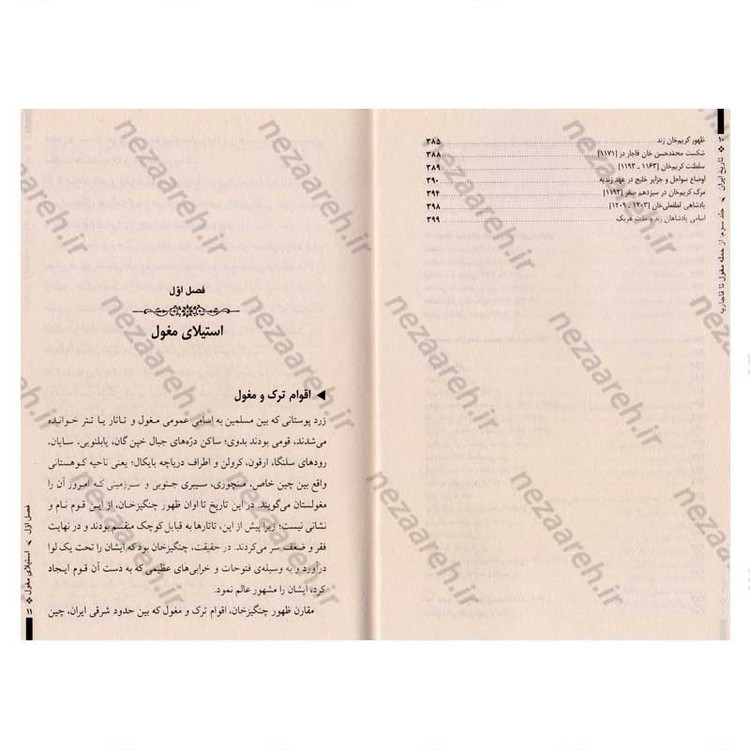 ظهور کریم‌خان زند ۳۸۵
شکست محمدحسن خان قاجار در [۱۱۷۱] ۳۸۸
سلطنت کریم‌خان [۱۱۶۳ ـ ۱۱۹۳] ۳۸۹
اوضاع سواحل و جزایر خلیج در عهد زندیه ۳۹۰
مرگ کریم‌خان در سیزدهم صفر [۱۱۹۳] ۳۹۴
پادشاهی لطفعلی‌خان [۱۲۰۳ ـ ۱۲۰۹] ۳۹۸
اسامی پادشاهان زند و مدت هریک ۳۹۹
تاریخ ایران
جلد سوم: از حمله مغول تا قاجاریه
فصل اوّل
استیلای مغول
اقوام ترک و مغول
زرد پوستانی که بین مسلمین به اسامی عمومی مغول و تاتار یا تتر خوانده
می‌شدند، قومی بودند بدوی؛ ساکن درّه‌های جبال خین گان، یابلنویی، سایان،
رودهای سلنگا، ارقون، کرولن و اطراف دریاچه بایکال؛ یعنی ناحیه کوهستانی
واقع بین چین خاص، منچوری، سیبری جنوبی و سرزمینی که امروز آن را
مغولستان می‌گویند. در این تاریخ تا اوان ظهور چنگیزخان، از این قوم نام و
نشانی نیست؛ زیرا پیش از این، تاتارها به قبایل کوچک منقسم بودند و در نهایت
فقر و ضعف سر می‌کردند. در حقیقت، چنگیزخان بود که ایشان را تحت یک لوا
درآورد و به وسیله‌ی فتوحات و خرابی‌های عظیمی که به دست آن قوم ایجاد
کرد، ایشان را مشهور عالم نمود.
مقارن ظهور چنگیزخان، اقوام ترک و مغول که بین حدود شرقی ایران، چین
فصل اوّل
استیلای مغول
۱۱
nezaareh.ir
nezaareh.ir
nezaareh.ir
nezaareh.ir
nezaareh.ir
nezaareh.ir
nezaareh.ir